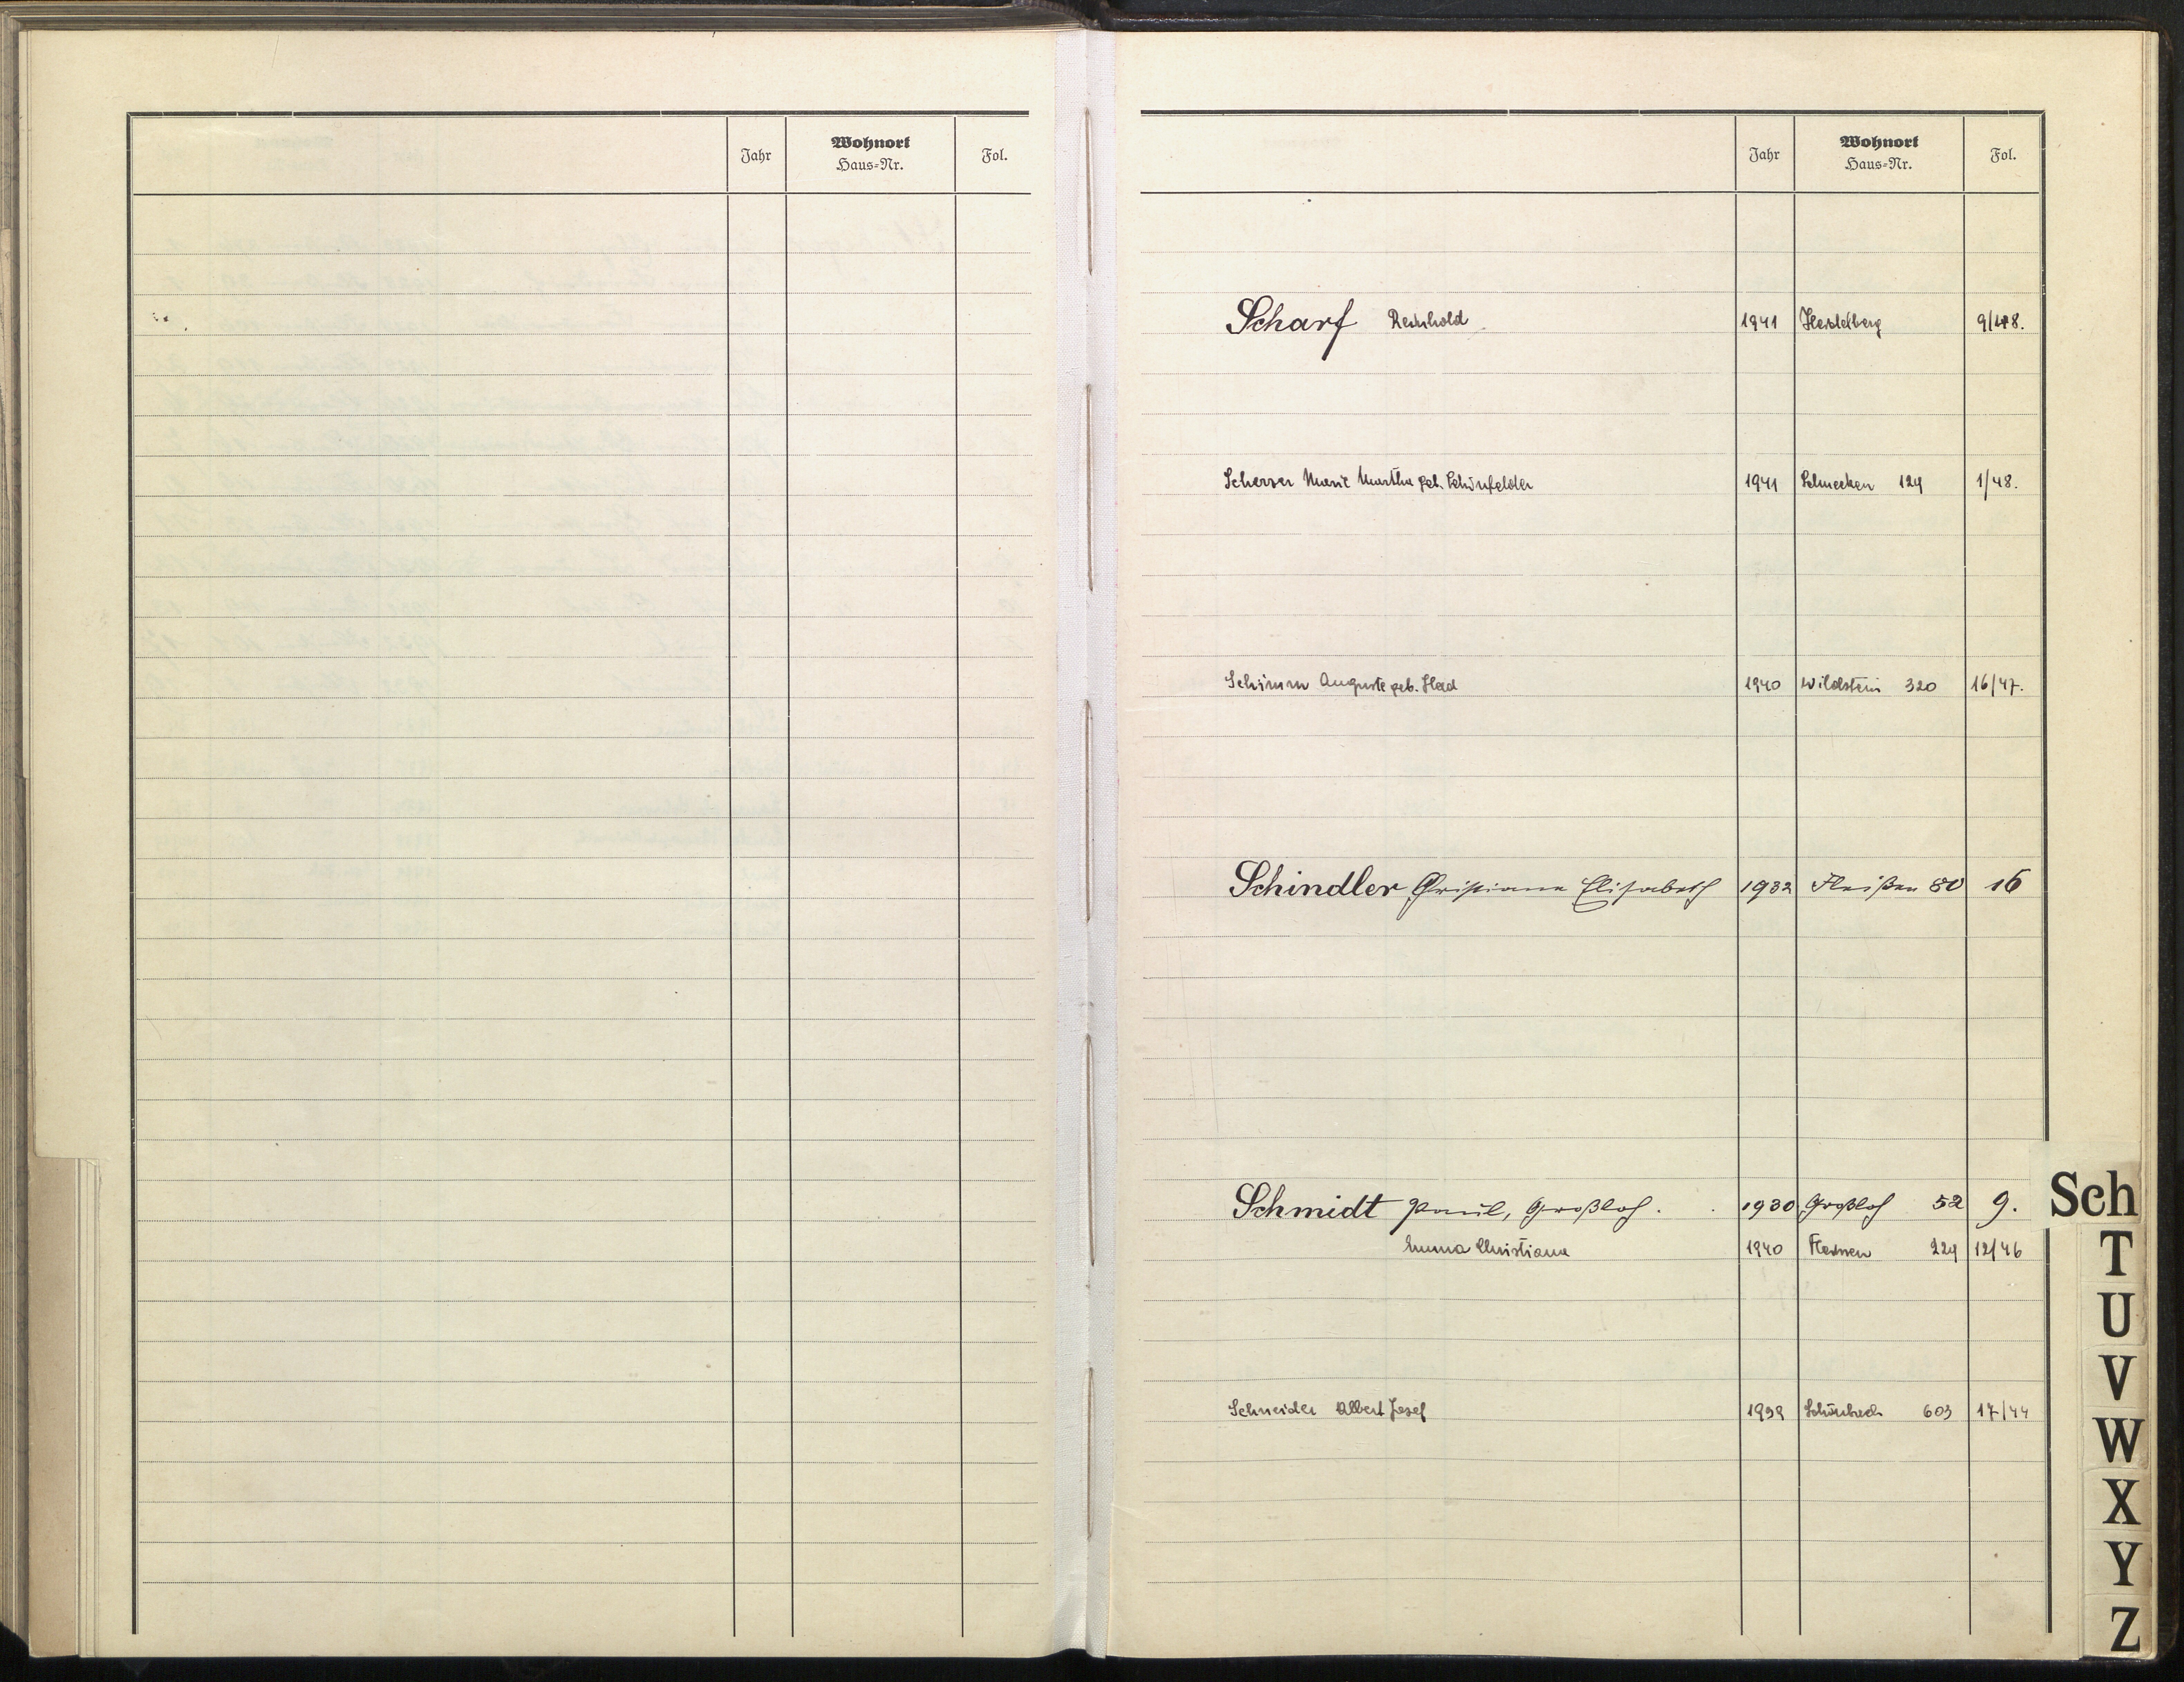 Jahr Wohnort Haus-Nr. Fol.
Jahr Wohnort Haus-Nr. Fol.
Scharf Reinhold 1941 Heidelberg 9/48.
Scherzer Marie Martha geb. Schönfelder 1941 Schnecken 124 1/48.
Schimm Auguste geb. 1940 Wildstein 320 16/47.
Schindler Christiana Elisabeth 1932 Fleißen 80 16
Schmidt Paul, Großloh. 1930 Großloh 52 9.
Emma Christiana 1940 Fleissen 224 12/46
Schneider Albert Josef 1939 Schönbach 603 17/44
Sch
T
U
V
W
X
Y
Z